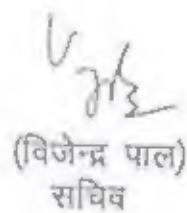 (विजेन्द्र पाल)
सचिव